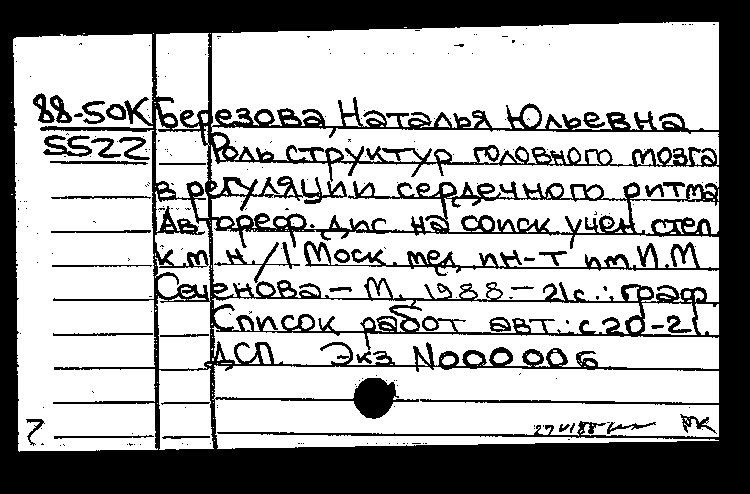 88-50К Березова, Наталья Юльевна.
5522 Роль структур головного мозга
в регуляции сердечного ритма
Автореф. дис на соиск учен. степ.
к.м.н. / 1 Моск. мед. ин-т им. И.М
Сеченова. - М., 1988. - 21с. : граф.
Список работ авт.: с. 20-21.
ДСП. Экз N000006